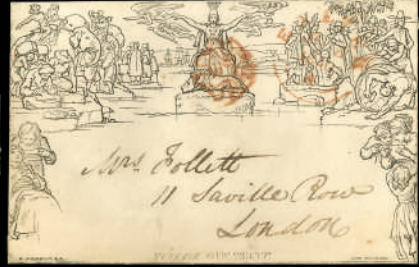 Mrs Follett
11 Saville Row
London